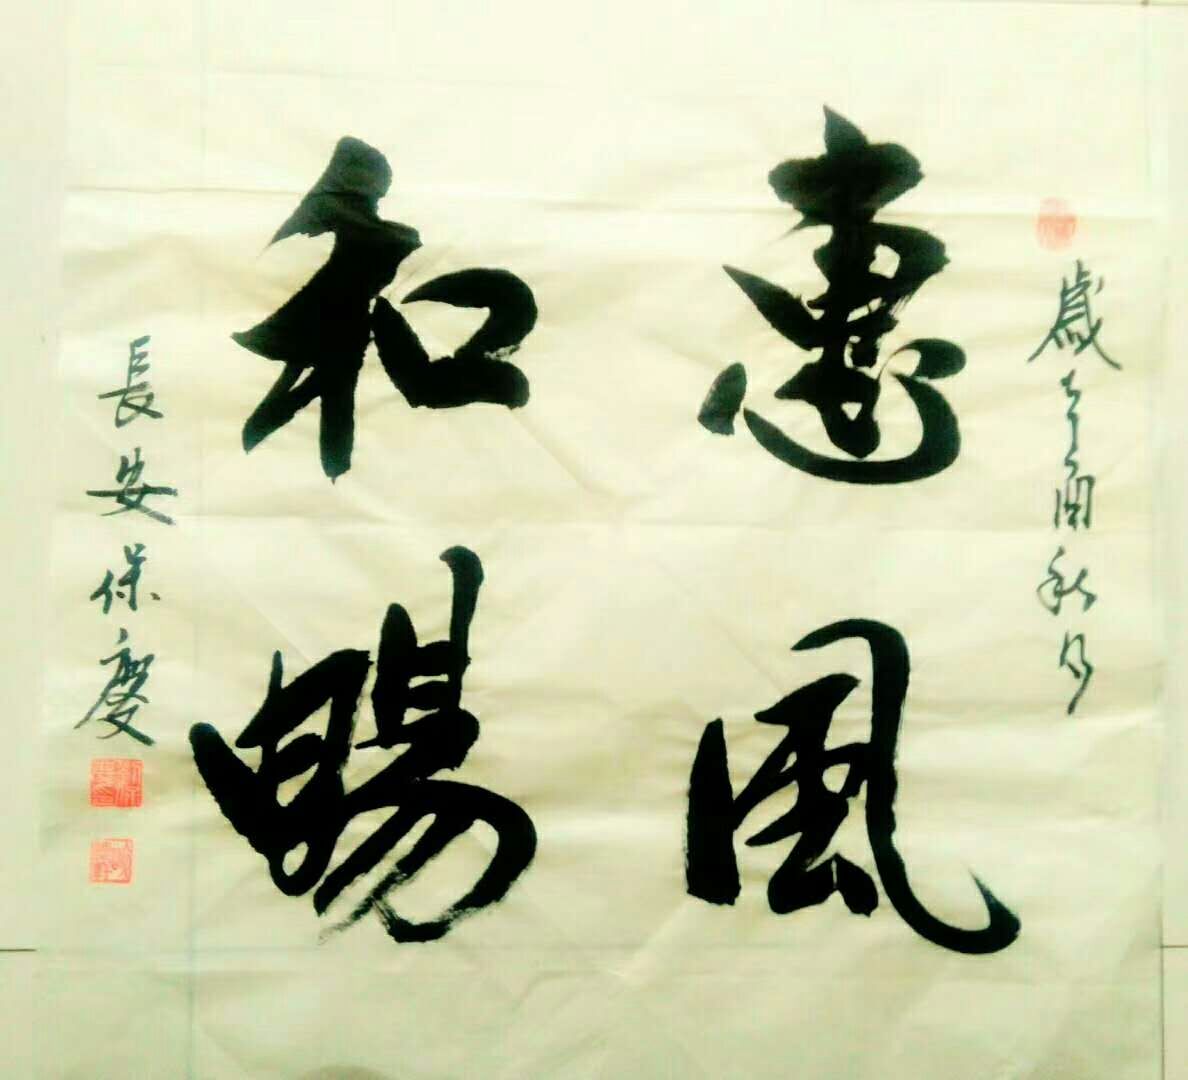 歲辛酉秋月
惠風
和暢
長安保慶